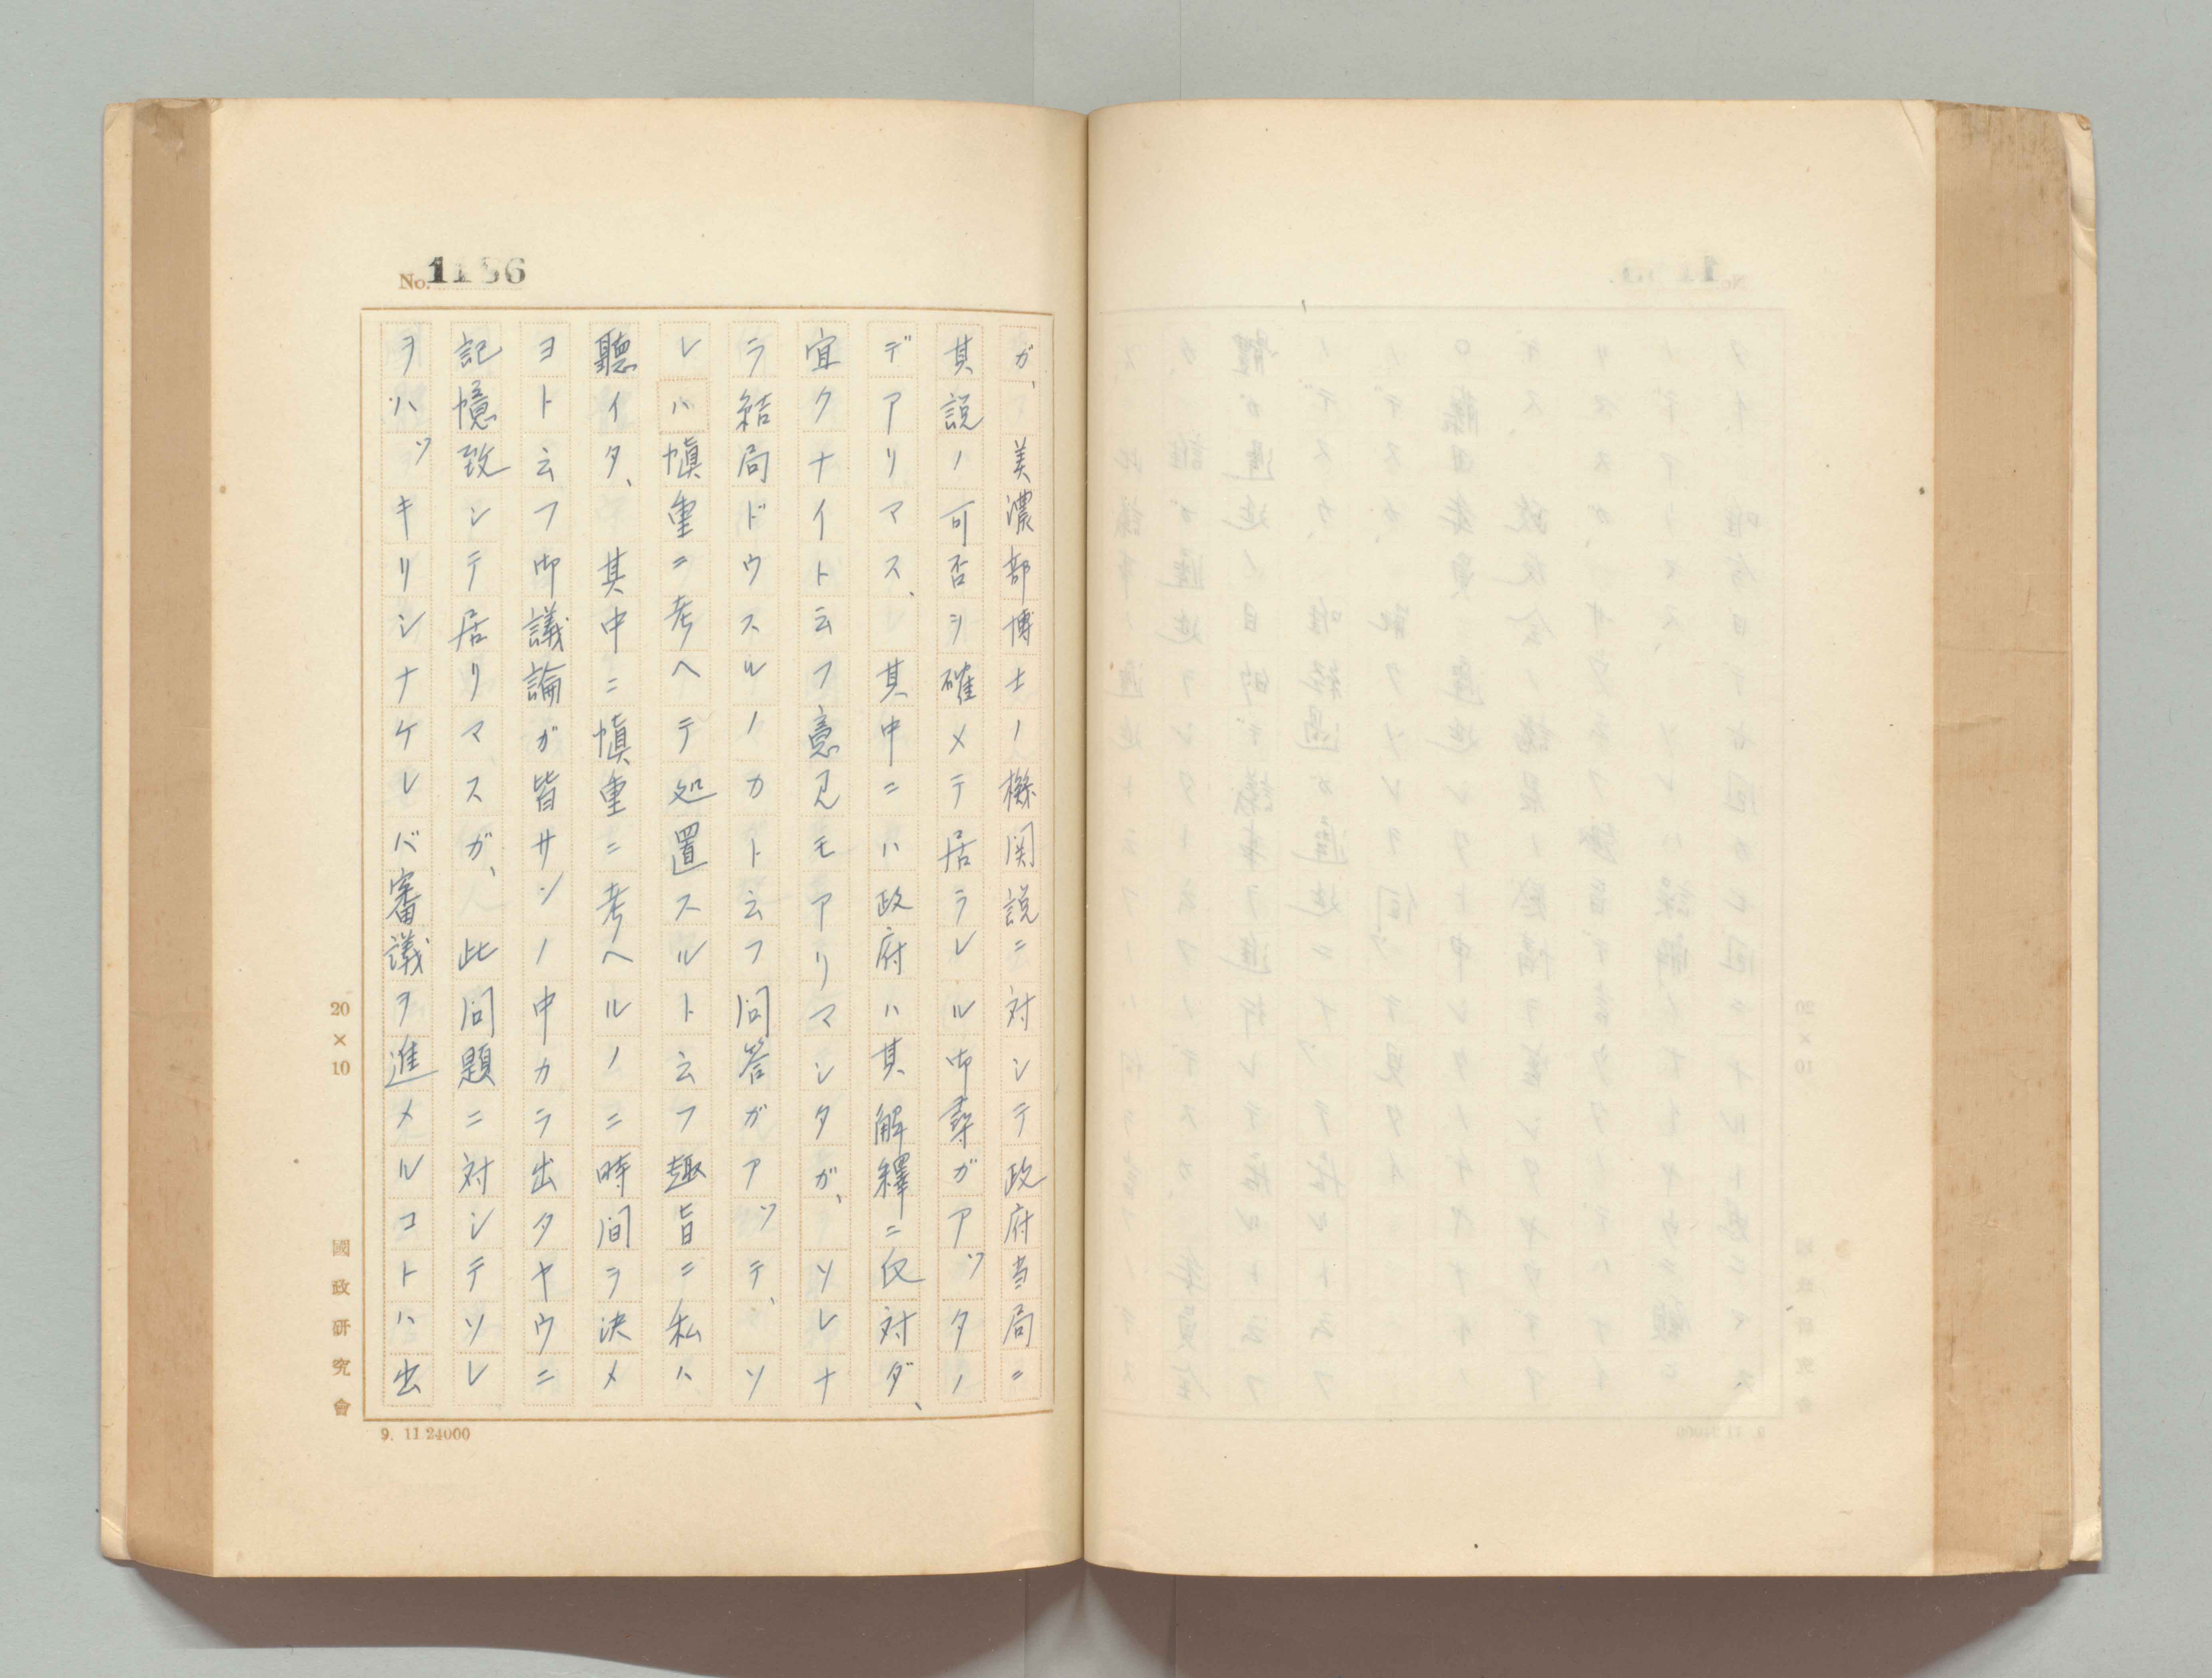 No. 1186
ガ、美濃部博士ノ機関説ニ対シテ政府当局ニ
其説ノ可否ヲ確メテ居ラレル御尋ガアツタノ
デアリマス、其中ニハ政府ハ其解釋ニ反対ダ、
宜クナイト云フ意見モアリマシタガ、ソレナ
ラ結局ドウスルノカト云フ問答ガアツテ、ソ
レハ慎重ニ考ヘテ処置スルト云フ趣旨ニ私ハ
聽イタ、其中ニ慎重ニ考ヘルノニ時間ヲ決メ
ヨト云フ御議論ガ皆サンノ中カラ出タヤウニ
記憶致シテ居リマスガ、此問題ニ対シテソレ
ヲハツキリシナケレバ審議ヲ進メルコトハ出
20×10
國政研究會
9. 11 24000